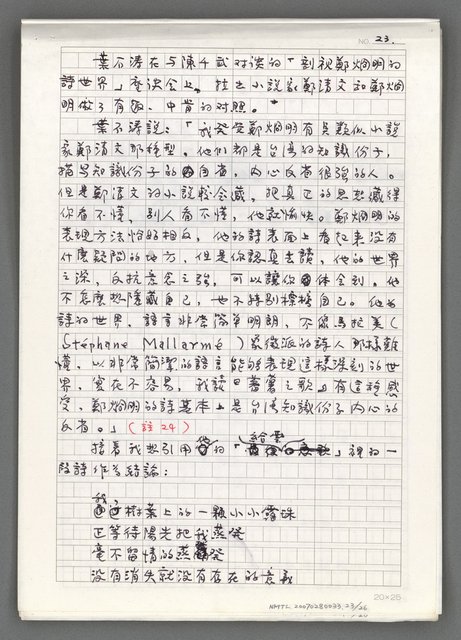 NO. 23.
葉石濤在与陳千武对谈的「剖視鄭烱明的
詩世界」座谈会上,拄出小説家鄭清文和鄭烱
明做了有趣、中肯的对照。
葉石濤説:「我覚覚鄭烱明有莫類似小説
家鄭清文那種型。他们都是台湾的知識份子,
描写知識份子的自省,内心反省很強的人。
但是鄭清文的小説較含蓄,把真正的思想藏得
你看不懂,别人看不懂,他就愉快。鄭烱明的
表現方法恰好相反,他的詩表面上看起来没有
什麼疑問的地方,但是你認真去讀,他的世界
之深,反抗意念之強,可以讓你体会到。他
不怎麼想隱藏自己,也不特别標榜自己。他的
詩的世界,語言非常简單明朗,不像馬拉美(
Stéphane Mallarmé)象徵派的詩人那樣難
懂,以非常简潔的語言能够表現這樣深刻的世
界,實在不容易,我讀『蕃薯之歌』有這種感
受,鄭烱明的詩基本上是台湾知識份子内心的
反省。」(註24)
接着我想引用他的「給雲」裡的一
段詩作為結論:
我是樹葉上的一顆小小露珠
正等待陽光把我蒸發
毫不留情的蒸發
没有消失就没有存在的意義
20×25
NMTL 20070280033 23/26